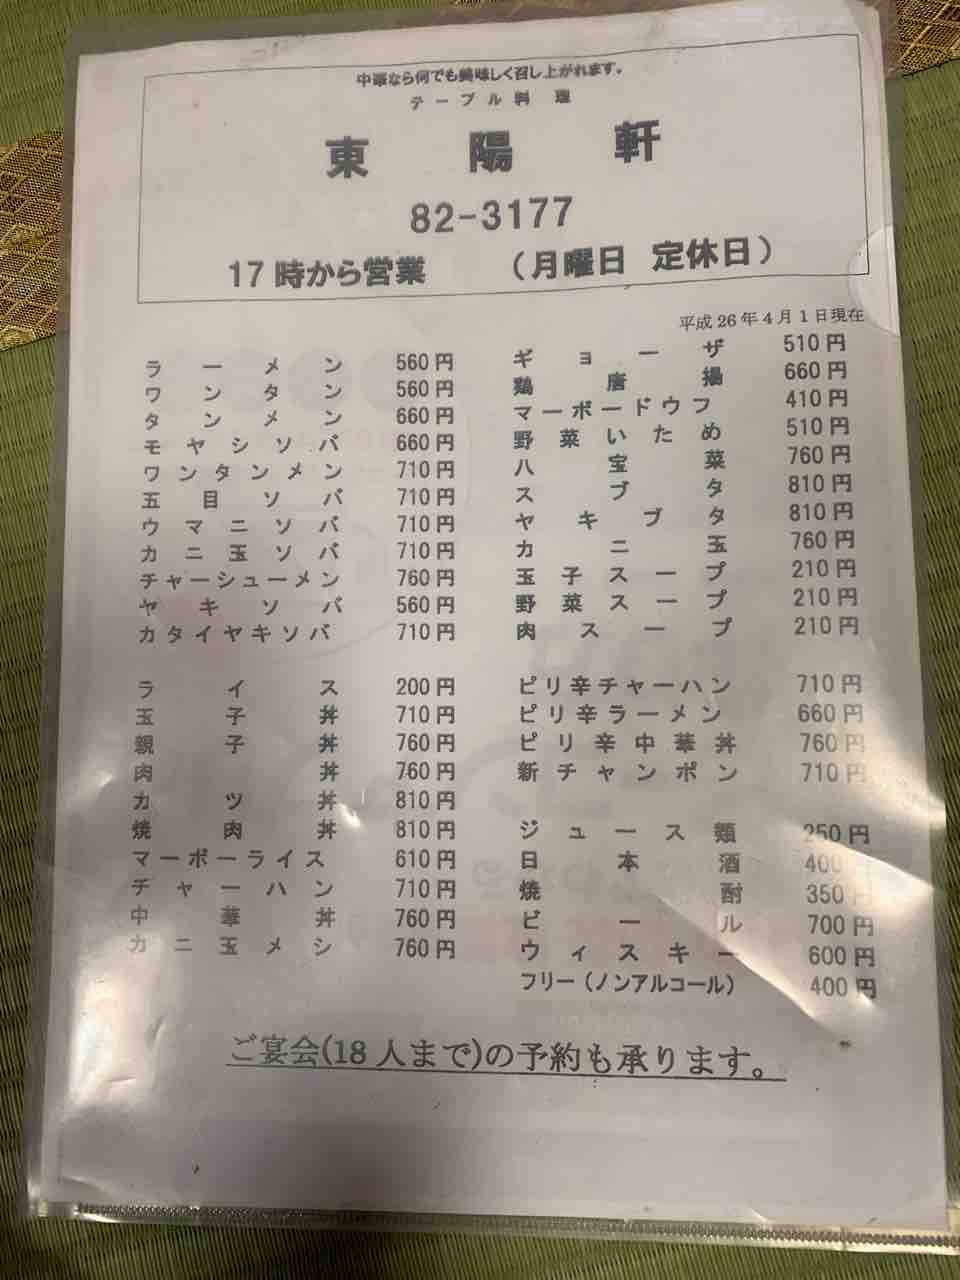 中華なら何でも美味しく召し上がれます。
テーブル料理
東陽軒
82-3177
17時から営業　（月曜日 定休日）
平成26年4月1日現在
ラーメン 560円
ワンタン 560円
タンメン 660円
モヤシソバ 660円
ワンタンメン 710円
五目ソバ 710円
ウマニソバ 710円
カニ玉ソバ 710円
チャーシューメン 760円
ヤキソバ 560円
カタイヤキソバ 710円
ライス 200円
玉子丼 710円
親子丼 760円
肉丼 760円
カツ丼 810円
焼肉丼 810円
マーボーライス 610円
チャーハン 710円
中華丼 760円
カニ玉メシ 760円
ギョーザ 510円
鶏唐揚 660円
マーボードウフ 410円
野菜いため 510円
八宝菜 760円
スブタ 810円
ヤキブタ 810円
カニ玉 760円
玉子スープ 210円
野菜スープ 210円
肉スープ 210円
ピリ辛チャーハン 710円
ピリ辛ラーメン 660円
ピリ辛中華丼 760円
新チャンポン 710円
ジュース類 250円
日本酒 400円
焼酎 350円
ビール 700円
ウィスキー 600円
フリー（ノンアルコール） 400円
ご宴会(18人まで)の予約も承ります。